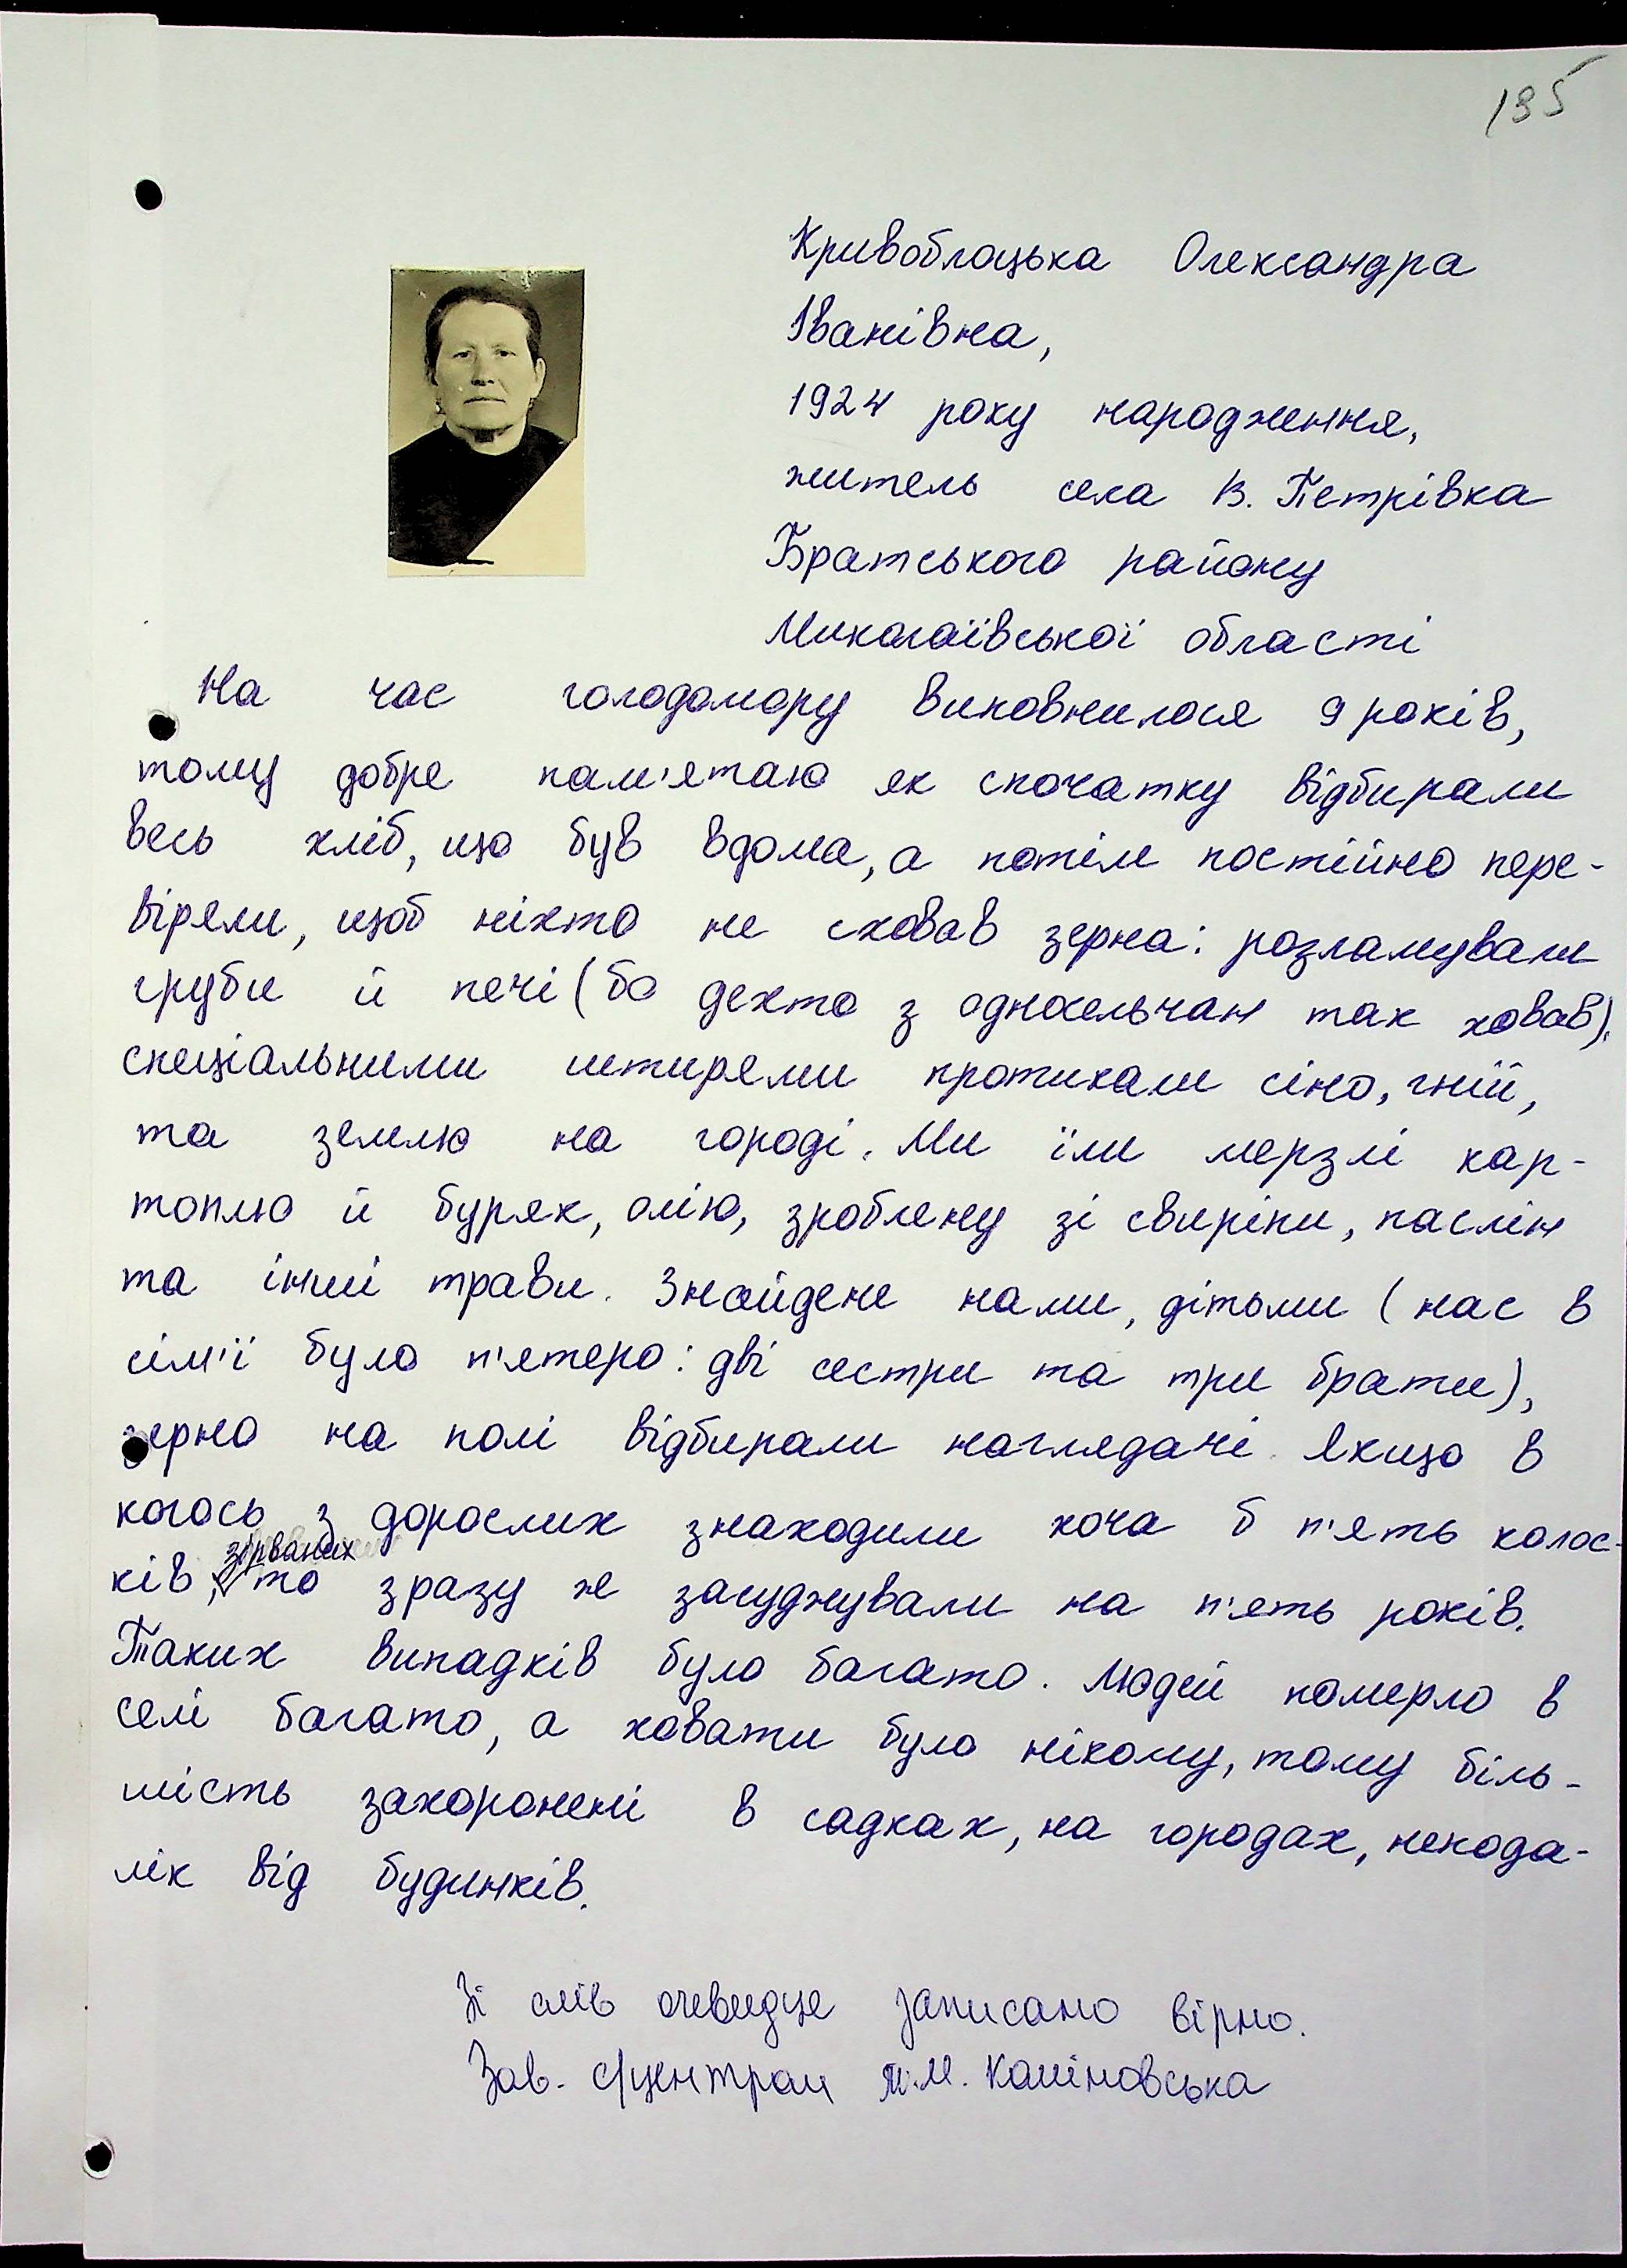 195
Кривоблоцька Олександра
Іванівна,
1924 року народження,
житель села В. Петрівка
Братського району
Миколаївської області
На час голодомору виповнилося 9 років,
тому добре пам'ятаю як спочатку відбирали
весь хліб, що був вдома, а потім постійно пере-
віряли, щоб ніхто не сховав зерна: розламували
груби й печі (бо дехто з односельчан так ховав),
спеціальними штирями протикали сіно, гній,
та землю на городі. Ми їли мерзлі кар-
топлю й буряк, олію, зроблену зі свиріпи, паслін
та інші трави. Знайдене нами, дітьми (нас в
сім'ї було п'ятеро: дві сестри та три брати),
зерно на полі відбирали наглядачі. Якщо в
когось з дорослих знаходили хоча б п'ять колос-
зірваних
ків, то зразу ж засуджували на п'ять років.
Таких випадків було багато. Людей померло в
селі багато, а ховати було нікому, тому біль-
шість захоронені в садках, на городах, непода-
лік від будинків.
Зі слів очевидця записано вірно.
Зав. с/центрац Т.М. Каліновська